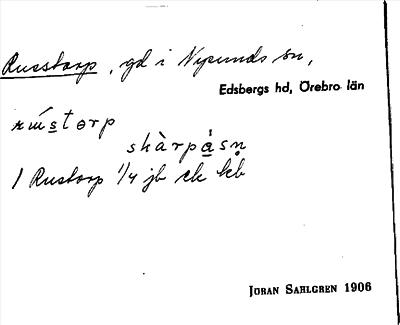 Russtorp, gd i Nysunds sn,
Edsbergs hd, Örebro län
rùstorp
skàrpåsn
1 Rustorp 1/4 jb ck kb
JÖRAN SAHLGREN 1906